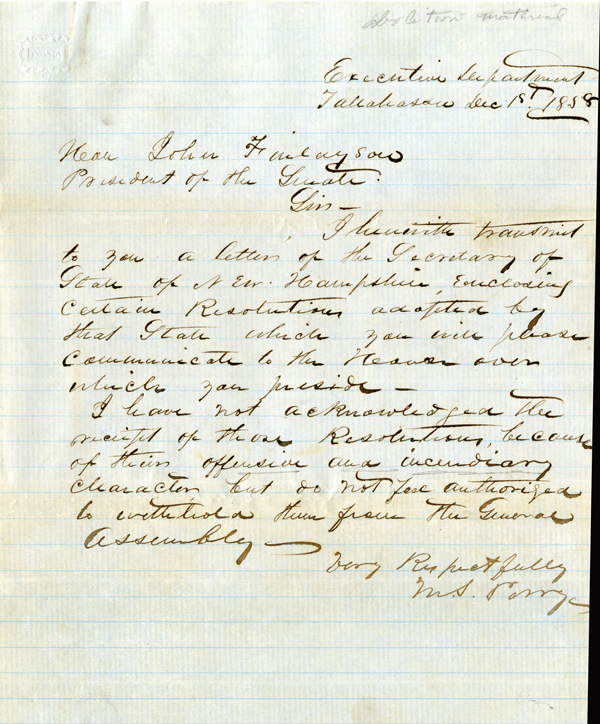 abolition material
Executive Department
Tallahassee Dec 1st 1858
Hon John Finlayson
President of the Senate.
Sir—
I herewith transmit
to you a letter of the Secretary of
State of New. Hampshire, Enclosing
Certain Resolutions adopted by
that State which you will please
Communicate to the House over
which you preside —
I have not acknowledged the
receipt of those Resolutions, because
of their offensive and incendiary
Character, but do not feel authorized
to withhold them from the General
Assembly —
Very Respectfully
M.S. Perry